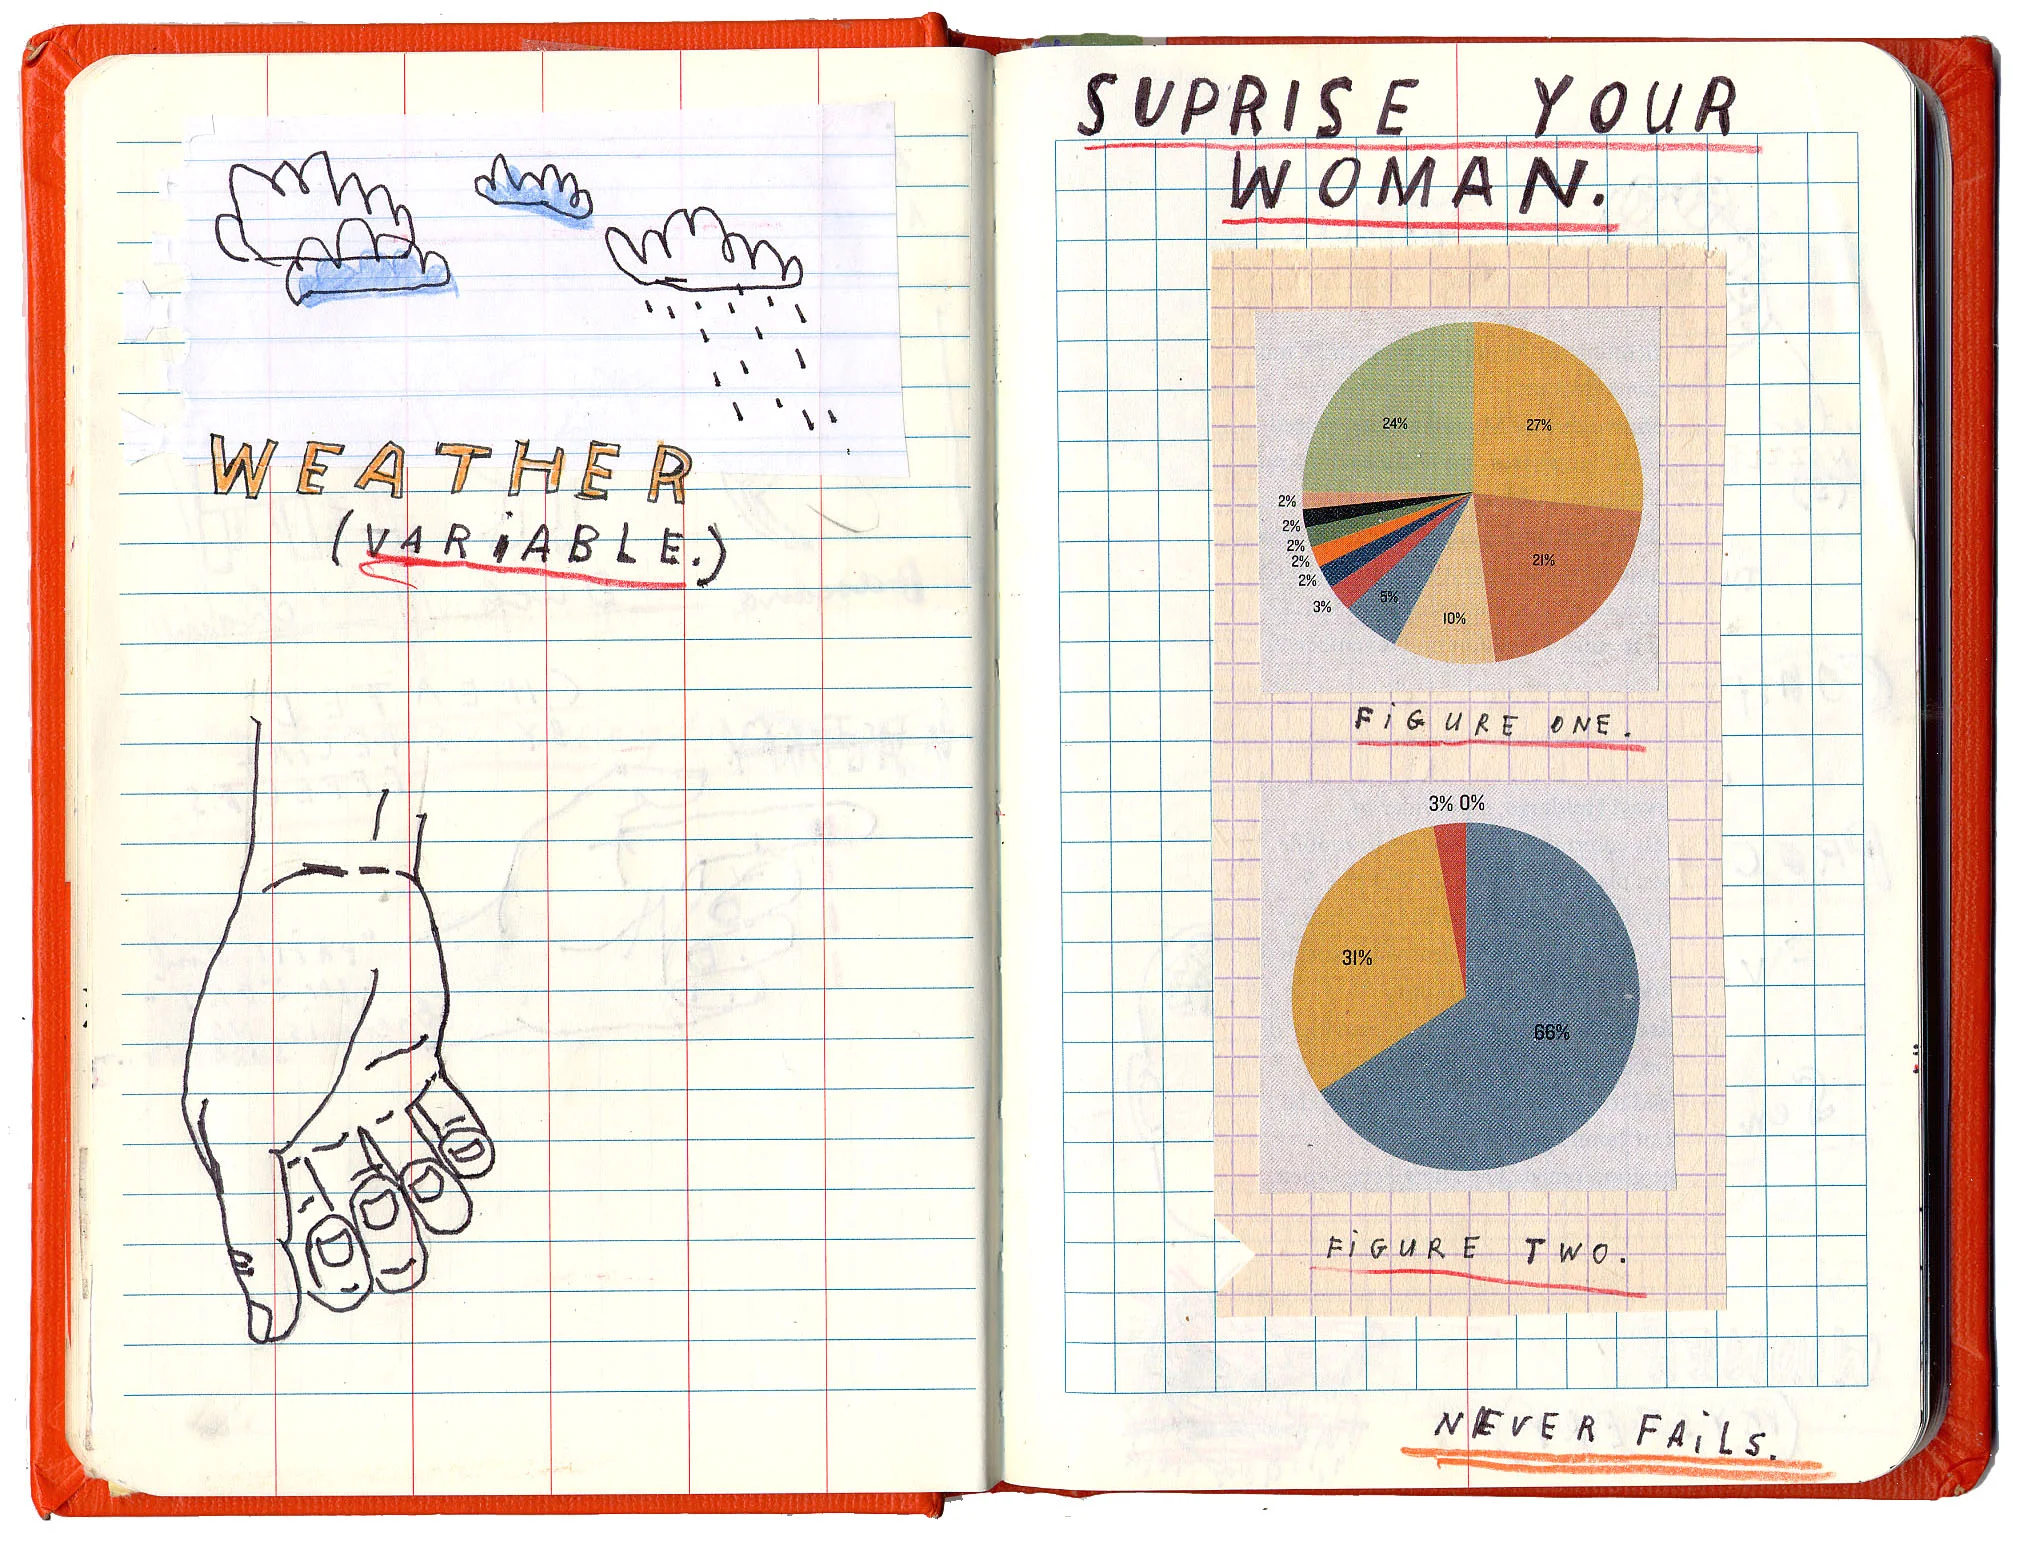 WEATHER
(VARiABLE.)
SUPRISE YOUR
WOMAN.
24%
27%
2%
2%
2%
2%
2%
3%
5%
10%
21%
FiGURE ONE.
3% 0%
31%
66%
FiGURE TWO.
NEVER FAiLS.